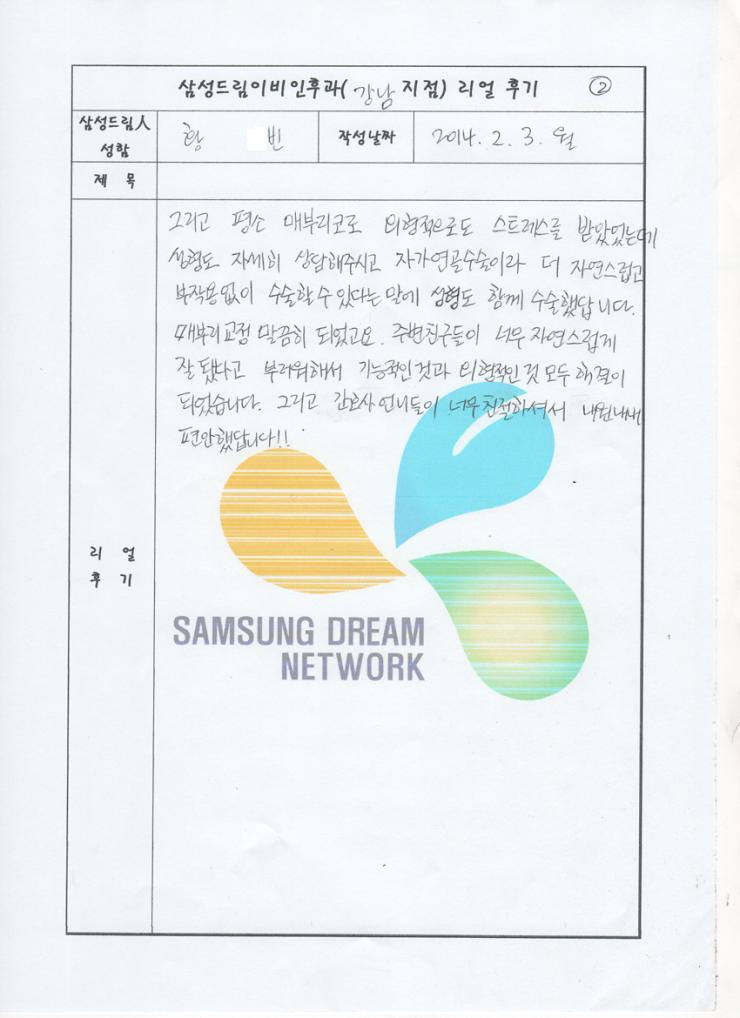 삼성드림이비인후과( 강남 지점) 리얼 후기 ②
삼성드림人 성함
황 빈
작성날짜
2014. 2. 3. 월
제 목
리 얼 후 기
그리고 평소 매부리코로 외형적으로도 스트레스를 받았었는데
성형도 자세히 상담해주시고 자가연골수술이라 더 자연스럽고
부작용없이 수술할수 있다는 말에 성형도 함께 수술했답니다.
매부리교정 말끔히 되었고요. 주변친구들이 너무 자연스럽게
잘 됐다고 부러워해서 기능적인것과 외형적인것 모두 해결이
되었습니다. 그리고 간호사언니들이 너무 친절하셔서 내원내내
편안했답니다!!
SAMSUNG DREAM
NETWORK